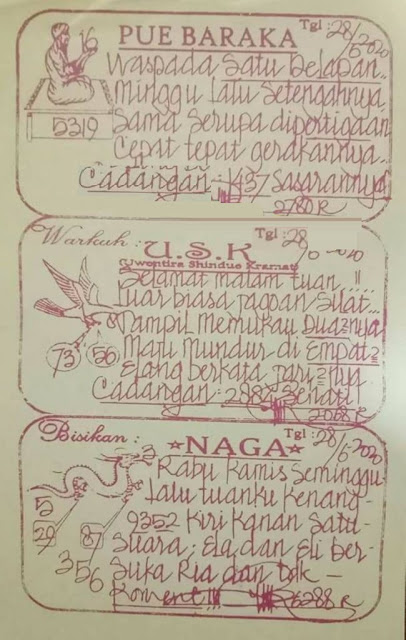 PUE BARAKA
Tgl : 28/5 2020
16
5319
Waspada satu delapan..
Minggu lalu setengahnya
Sama serupa dipertigaan
Cepat tepat gerakannya..
Cadangan - 1437 Sasarannya
2780 R
Warkuh :
U.S.K
Tgl : 28
(Uwontira Shindue Kramat)
Selamat malam tuan...!!
Luar biasa jagoan Silat...
Tampil memukau Dua2nya
Maju mundur di Empat2
Elang berkata Tari2nya
73 56
Cadangan - 2987 Benati
2088 R
Bisikan :
NAGA
Tgl : 28/5 2020
Rabu Kamis Seminggu
lalu tuanku kenang -
9352 Kiri Kanan Satu -
Suara ; Ela dan Eli ber-
Suka Ria dan tak -
Koment !!!
6288 R
29
87
356